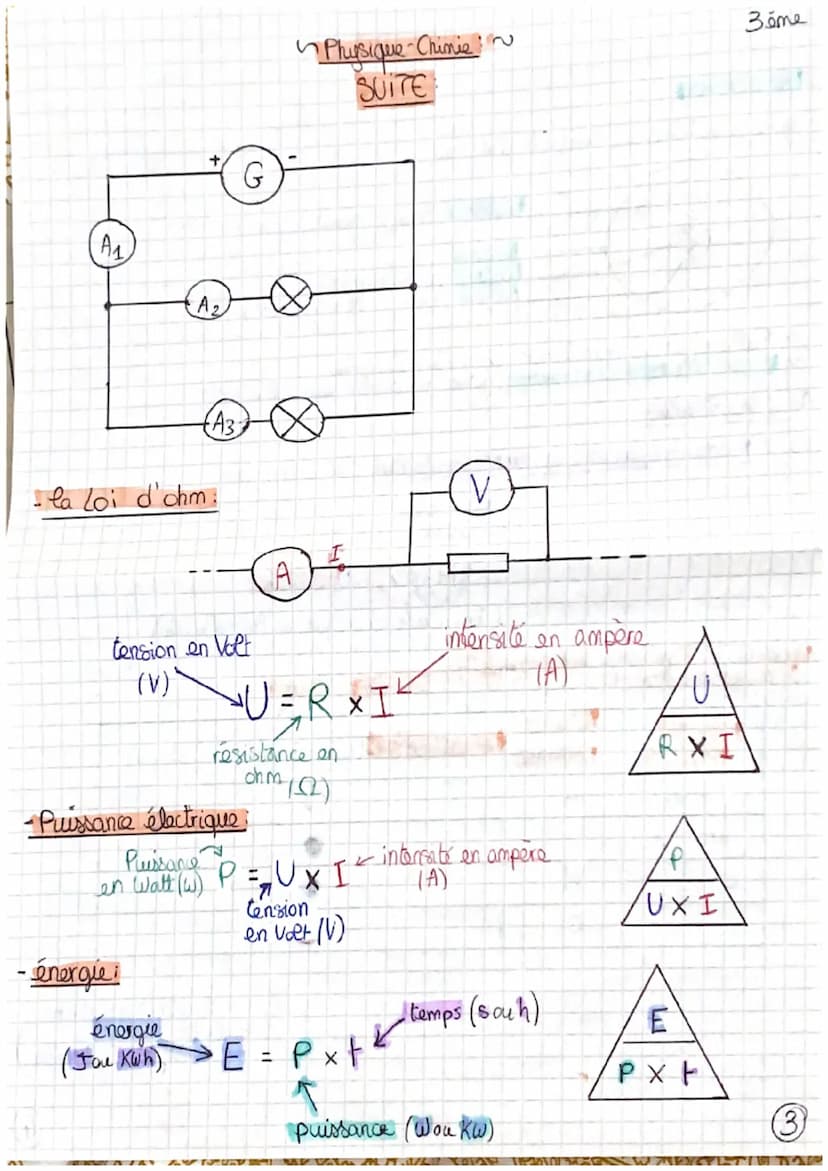 3ème
~ Physique-Chimie: ~
SUITE
+ G -
A1
A2
A3
- la Loi d'ohm:
V
A I
tension en Volt
(V)
intensité en ampère
(A)
U = R x I
résistance en
ohm (Ω)
U
R X I
- Puissance électrique
Puissance
en Watt (W)
P = U x I
intensité en ampère
(A)
tension
en Volt (V)
P
U X I
- énergie:
énergie
(J ou KWh)
E = P x t
temps (s ou h)
puissance (W ou KW)
E
P X t
3